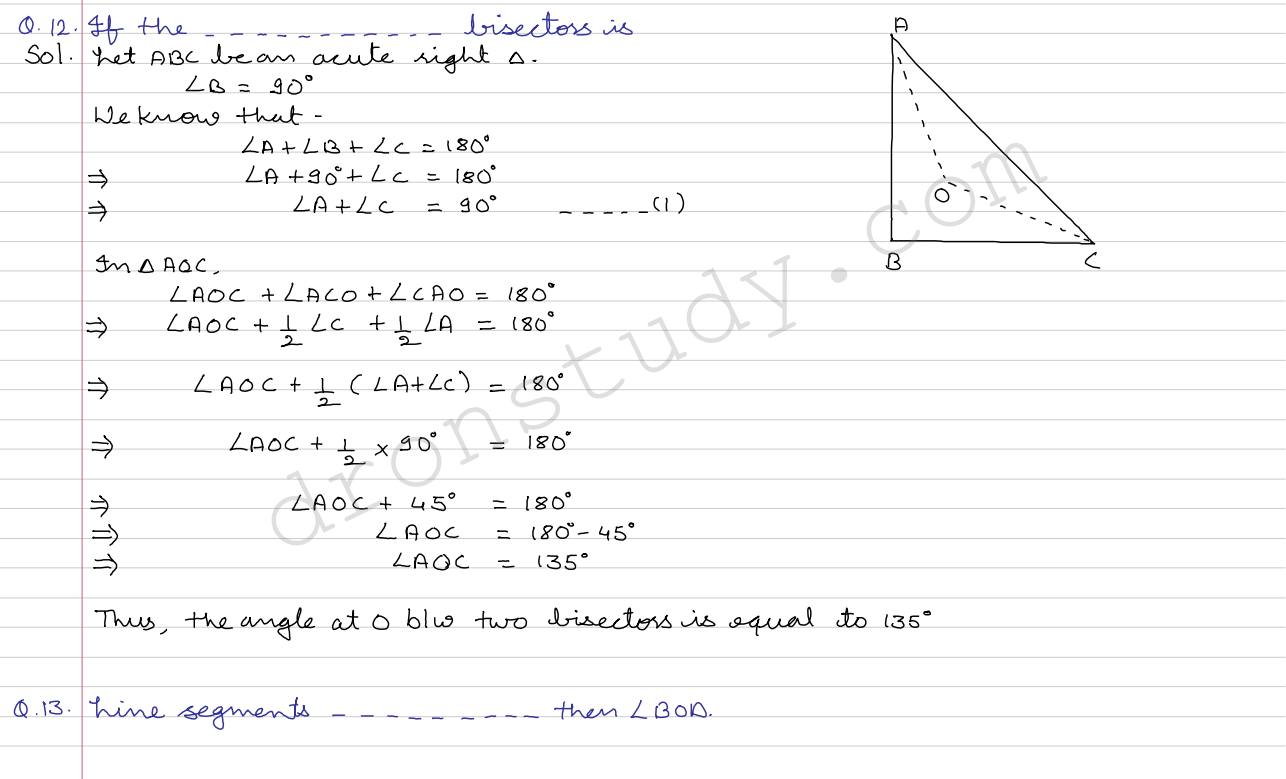 Q.12. If the ------------ bisectors is
Sol. Let ABC be an acute right Δ.
∠B = 90°
We know that -
∠A + ∠B + ∠C = 180°
⇒ ∠A + 90° + ∠C = 180°
⇒ ∠A + ∠C = 90° -----(1)
In Δ AOC,
∠AOC + ∠ACO + ∠CAO = 180°
⇒ ∠AOC + 1/2 ∠C + 1/2 ∠A = 180°
⇒ ∠AOC + 1/2 (∠A+∠C) = 180°
⇒ ∠AOC + 1/2 × 90° = 180°
⇒ ∠AOC + 45° = 180°
⇒ ∠AOC = 180° - 45°
⇒ ∠AOC = 135°
Thus, the angle at O b/w two bisectors is equal to 135°
Q.13. Line segments ---------- then ∠BOD.
A
O
B
C
dronstudy.com